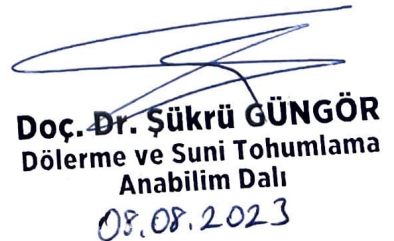 Doç. Dr. Şükrü GÜNGÖR
Dölerme ve Suni Tohumlama
Anabilim Dalı
08.08.2023